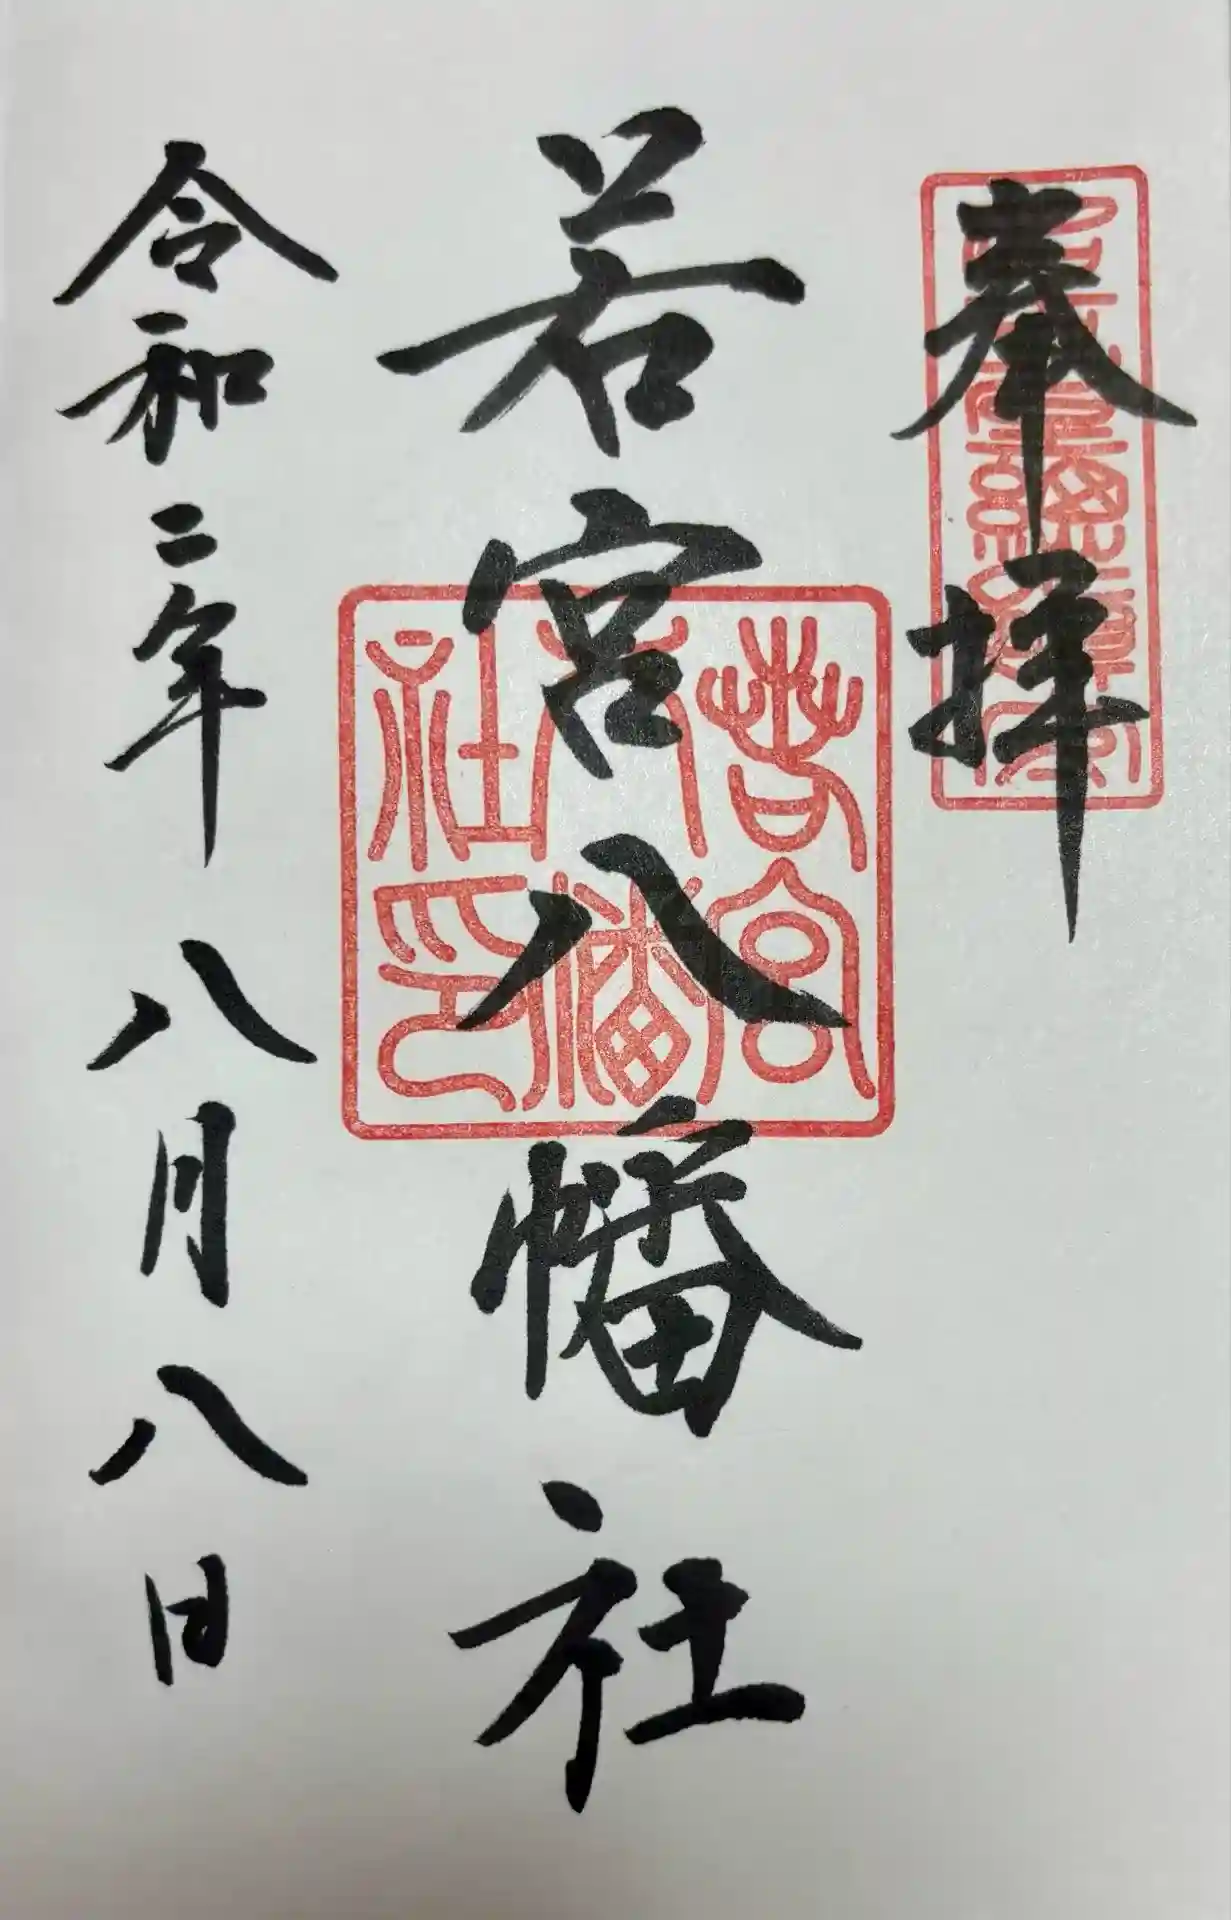 奉拝
若宮八幡社
令和二年八月八日
若宮
八幡
社印